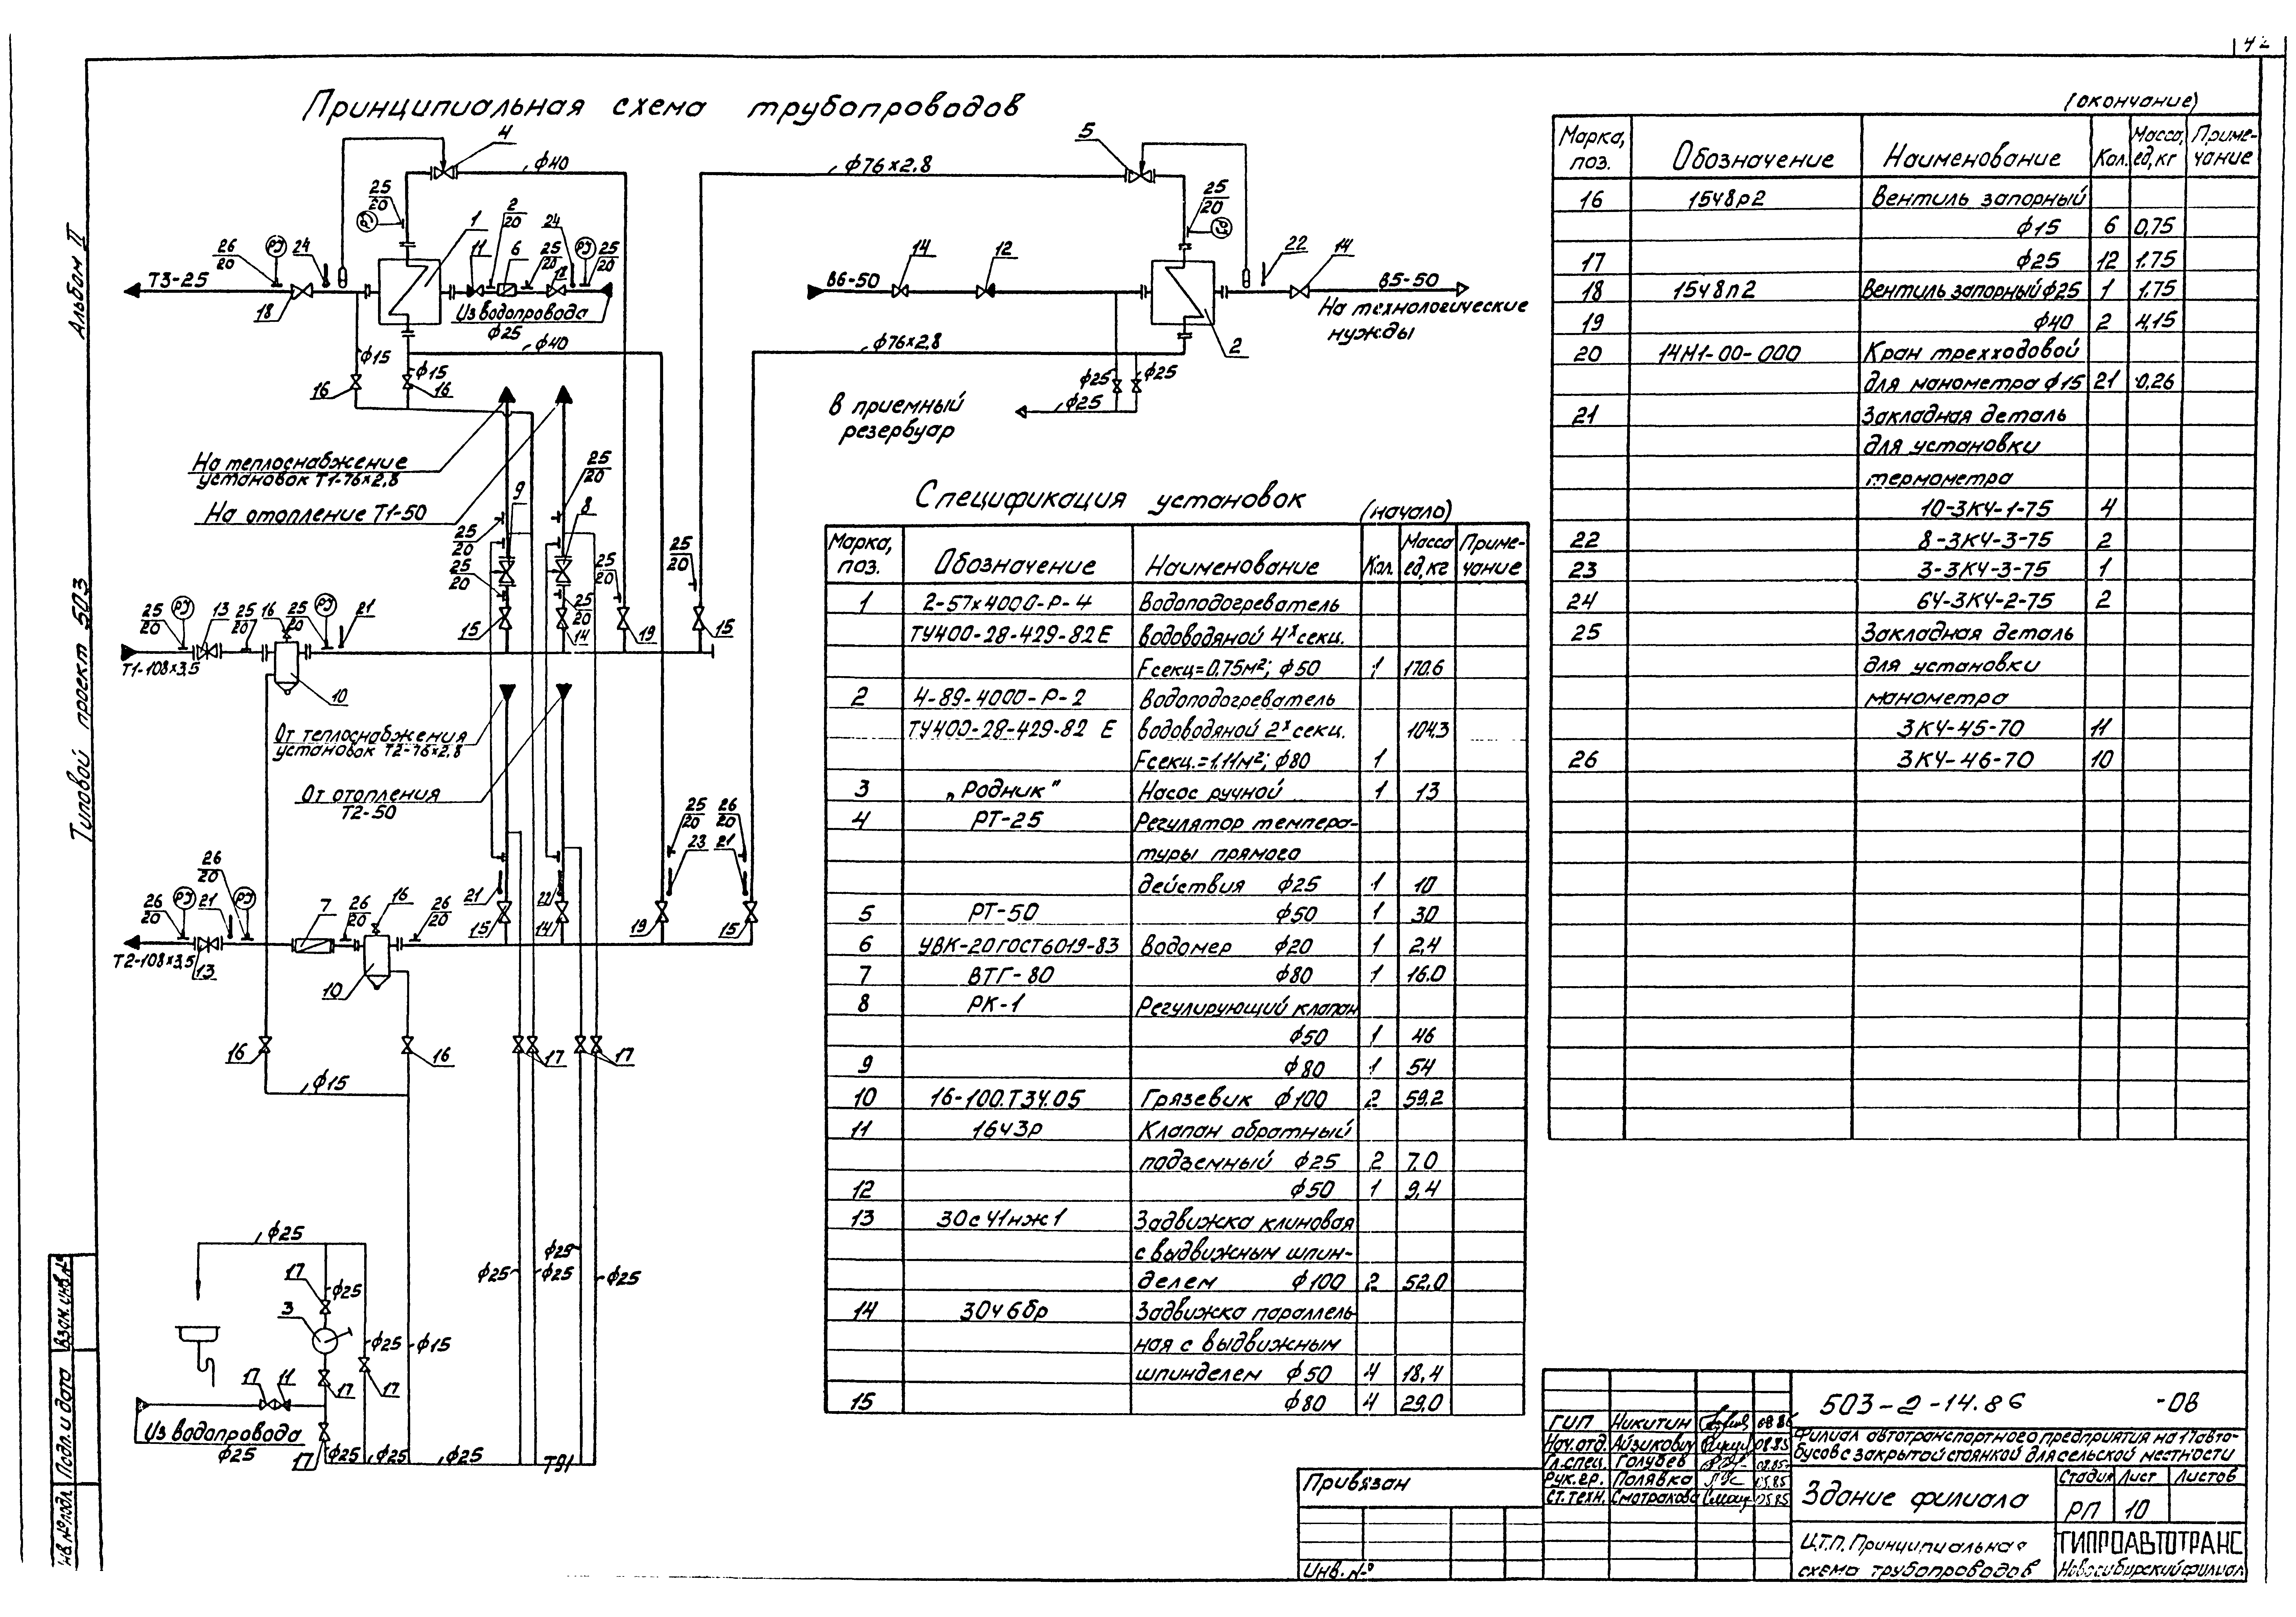 42
Принципиальная схема трубопроводов
Альбом II
Типовой проект 503
4
ф40
25
20
1
2
20
24
11
6
25
20
18
РУ
25
20
26
20
РУ
24
Т3-25
18
Из водопровода
ф25
ф40
ф15
ф15
16
16
5
ф76х2,8
25
20
22
14
14
12
В6-50
В5-50
На технологические
нужды
ф76х2,8
2
ф25
ф25
ф25
В приемный
резервуар
На теплоснабжение
установок Т1-76х2,8
На отопление Т1-50
25
20
9
8
25
20
25
20
25
20
25
20
25
20
15
14
19
15
25
20
РУ
13
25
20
16
25
20
РУ
21
Т1-108х3,5
10
От теплоснабжения
установок Т2-76х2,8
От отопления
Т2-50
25
20
26
20
23
21
26
20
РУ
21
26
20
РУ
7
26
20
16
26
20
21
22
15
14
19
15
Т2-108х3,5
13
10
16
16
17
17
ф15
ф25
17
ф25
3
ф25
ф15
17
11
17
17
Из водопровода
ф25
17
ф25
ф25
ф25
ф25
ф25
ф25
ф25
Т91
Спецификация установок (начало)
Марка, поз. Обозначение Наименование Кол. Масса ед,кг Приме-чание
1 2-57х4000-Р-4 Водоподогреватель
ТУ400-28-429-82Е водоводяной 4х секц.
Fсекц=0.75м²; ф50 1 170.6
2 4-89-4000-Р-2 Водоподогреватель
ТУ400-28-429-82 Е водоводяной 2х секц. 104,3
Fсекц.=1.11м²; ф80 1
3 „Родник" Насос ручной 1 13
4 РТ-25 Регулятор темпера-
туры прямого
действия ф25 1 10
5 РТ-50 ф50 1 30
6 УВК-20 ГОСТ6019-83 Водомер ф20 1 2,4
7 ВТГ-80 ф80 1 16.0
8 РК-1 Регулирующий клапан
ф50 1 46
9 ф80 1 54
10 16-100.ТЗ4.05 Грязевик ф100 2 59.2
11 16ч3р Клапан обратный
подъемный ф25 2 7.0
12 ф50 1 9,4
13 30с41нж1 Задвижка клиновая
с выдвижным шпин-
делем ф100 2 52,0
14 30ч6бр Задвижка параллель
ная с выдвижным
шпинделем ф50 4 18,4
15 ф80 4 29.0
(окончание)
Марка, поз. Обозначение Наименование Кол. Масса, ед,кг Приме-чание
16 15ч8р2 Вентиль запорный
ф15 6 0,75
17 ф25 12 1.75
18 15ч8п2 Вентиль запорный ф25 1 1.75
19 ф40 2 4,15
20 14М1-00-000 Кран трехходовой
для манометра ф15 21 0,26
21 Закладная деталь
для установки
термометра
10-ЗК4-1-75 4
22 8-ЗК4-3-75 2
23 3-ЗК4-3-75 1
24 64-ЗК4-2-75 2
25 Закладная деталь
для установки
манометра
ЗК4-45-70 11
26 ЗК4-46-70 10
Взам. инв.№
Подп. и дата
Инв.№ подл.
Привязан
Инв. №
ГИП Никитин
Нач.отд. Айзикович 08.85
Гл.спец. Голубев
Рук.гр. Полявка
Ст.техн. Смотракова
503-2-14.86 -ОВ
Филиал автотранспортного предприятия на 17 авто-
бусов с закрытой стоянкой для сельской местности
Здание филиала
Стадия Лист Листов
РП 10
Ц.Т.П. Принципиальная
схема трубопроводов
ГИПРОАВТОТРАНС
Новосибирский филиал